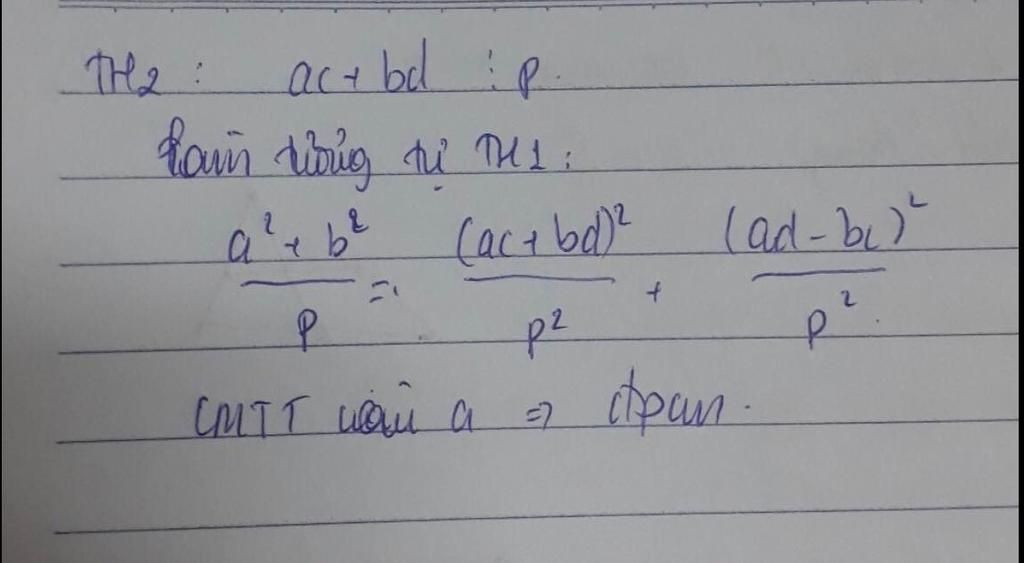 TH2 : ac + bd ⋮ p.
tương tự TH1 :
(a² + b²)/p = (ac + bd)²/p² + (ad - bc)²/p².
CMTT a => đpcm.